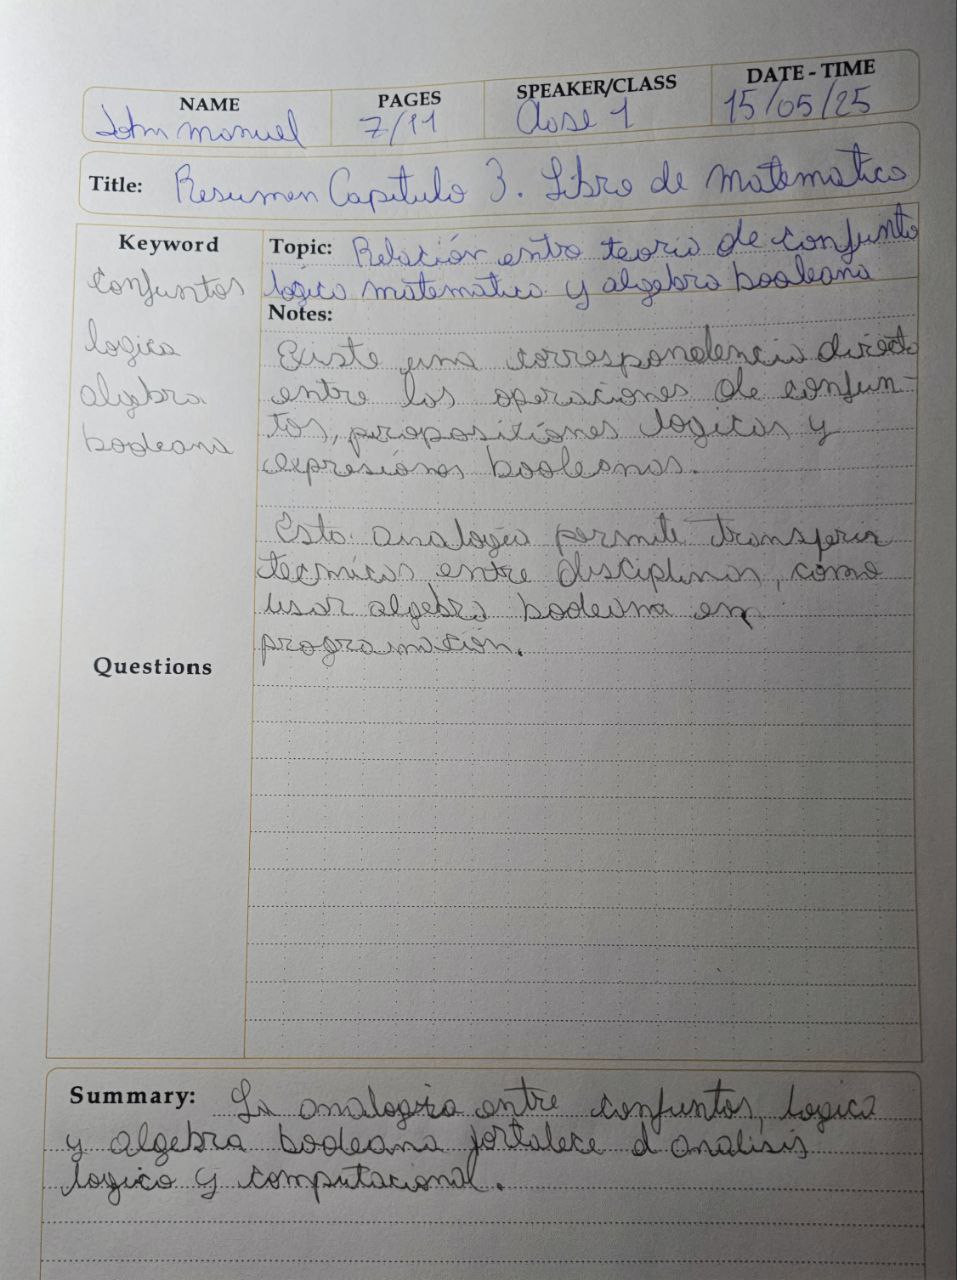 NAME PAGES SPEAKER/CLASS DATE - TIME
John Manuel 7/11 Clase 1 15/05/25
Title: Resumen Capitulo 3. Libro de matematica
Keyword
conjuntos
logica
algebra
booleana
Topic: Relación entre teoria de conjunto
lógica matematica y algebra booleana
Notes:
Existe una correspondencia directa
entre las operaciones de conjun-
tos, proposiciones logicas y
expresiónes booleanas.
Esta analogia permite transferir
tecnicas entre disciplinas, como
usar algebra booleana en
programación.
Questions
Summary: La analogia entre conjuntos, logica
y algebra booleana fortalece el analisis
logico y computacional.